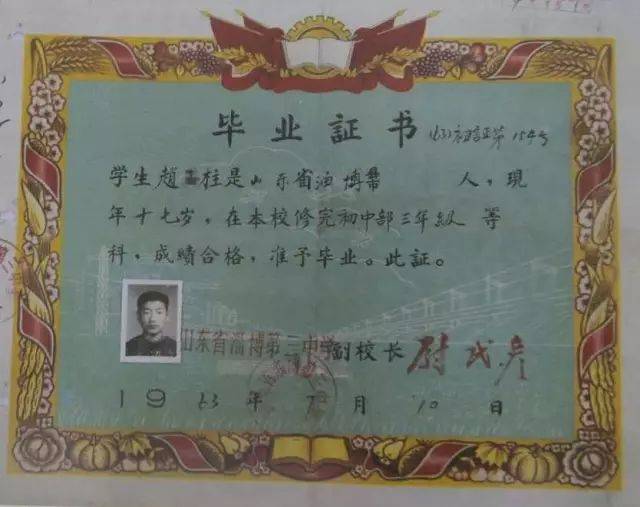 毕业証书
(63)初証字第154号
学生趙 柱是山东省淄博市 人，現
年十七岁，在本校修完初中部三年級 等
科，成績合格，准予毕业。此証。
山东省淄博第三中学副校长 尉武彦
1963年7月10日